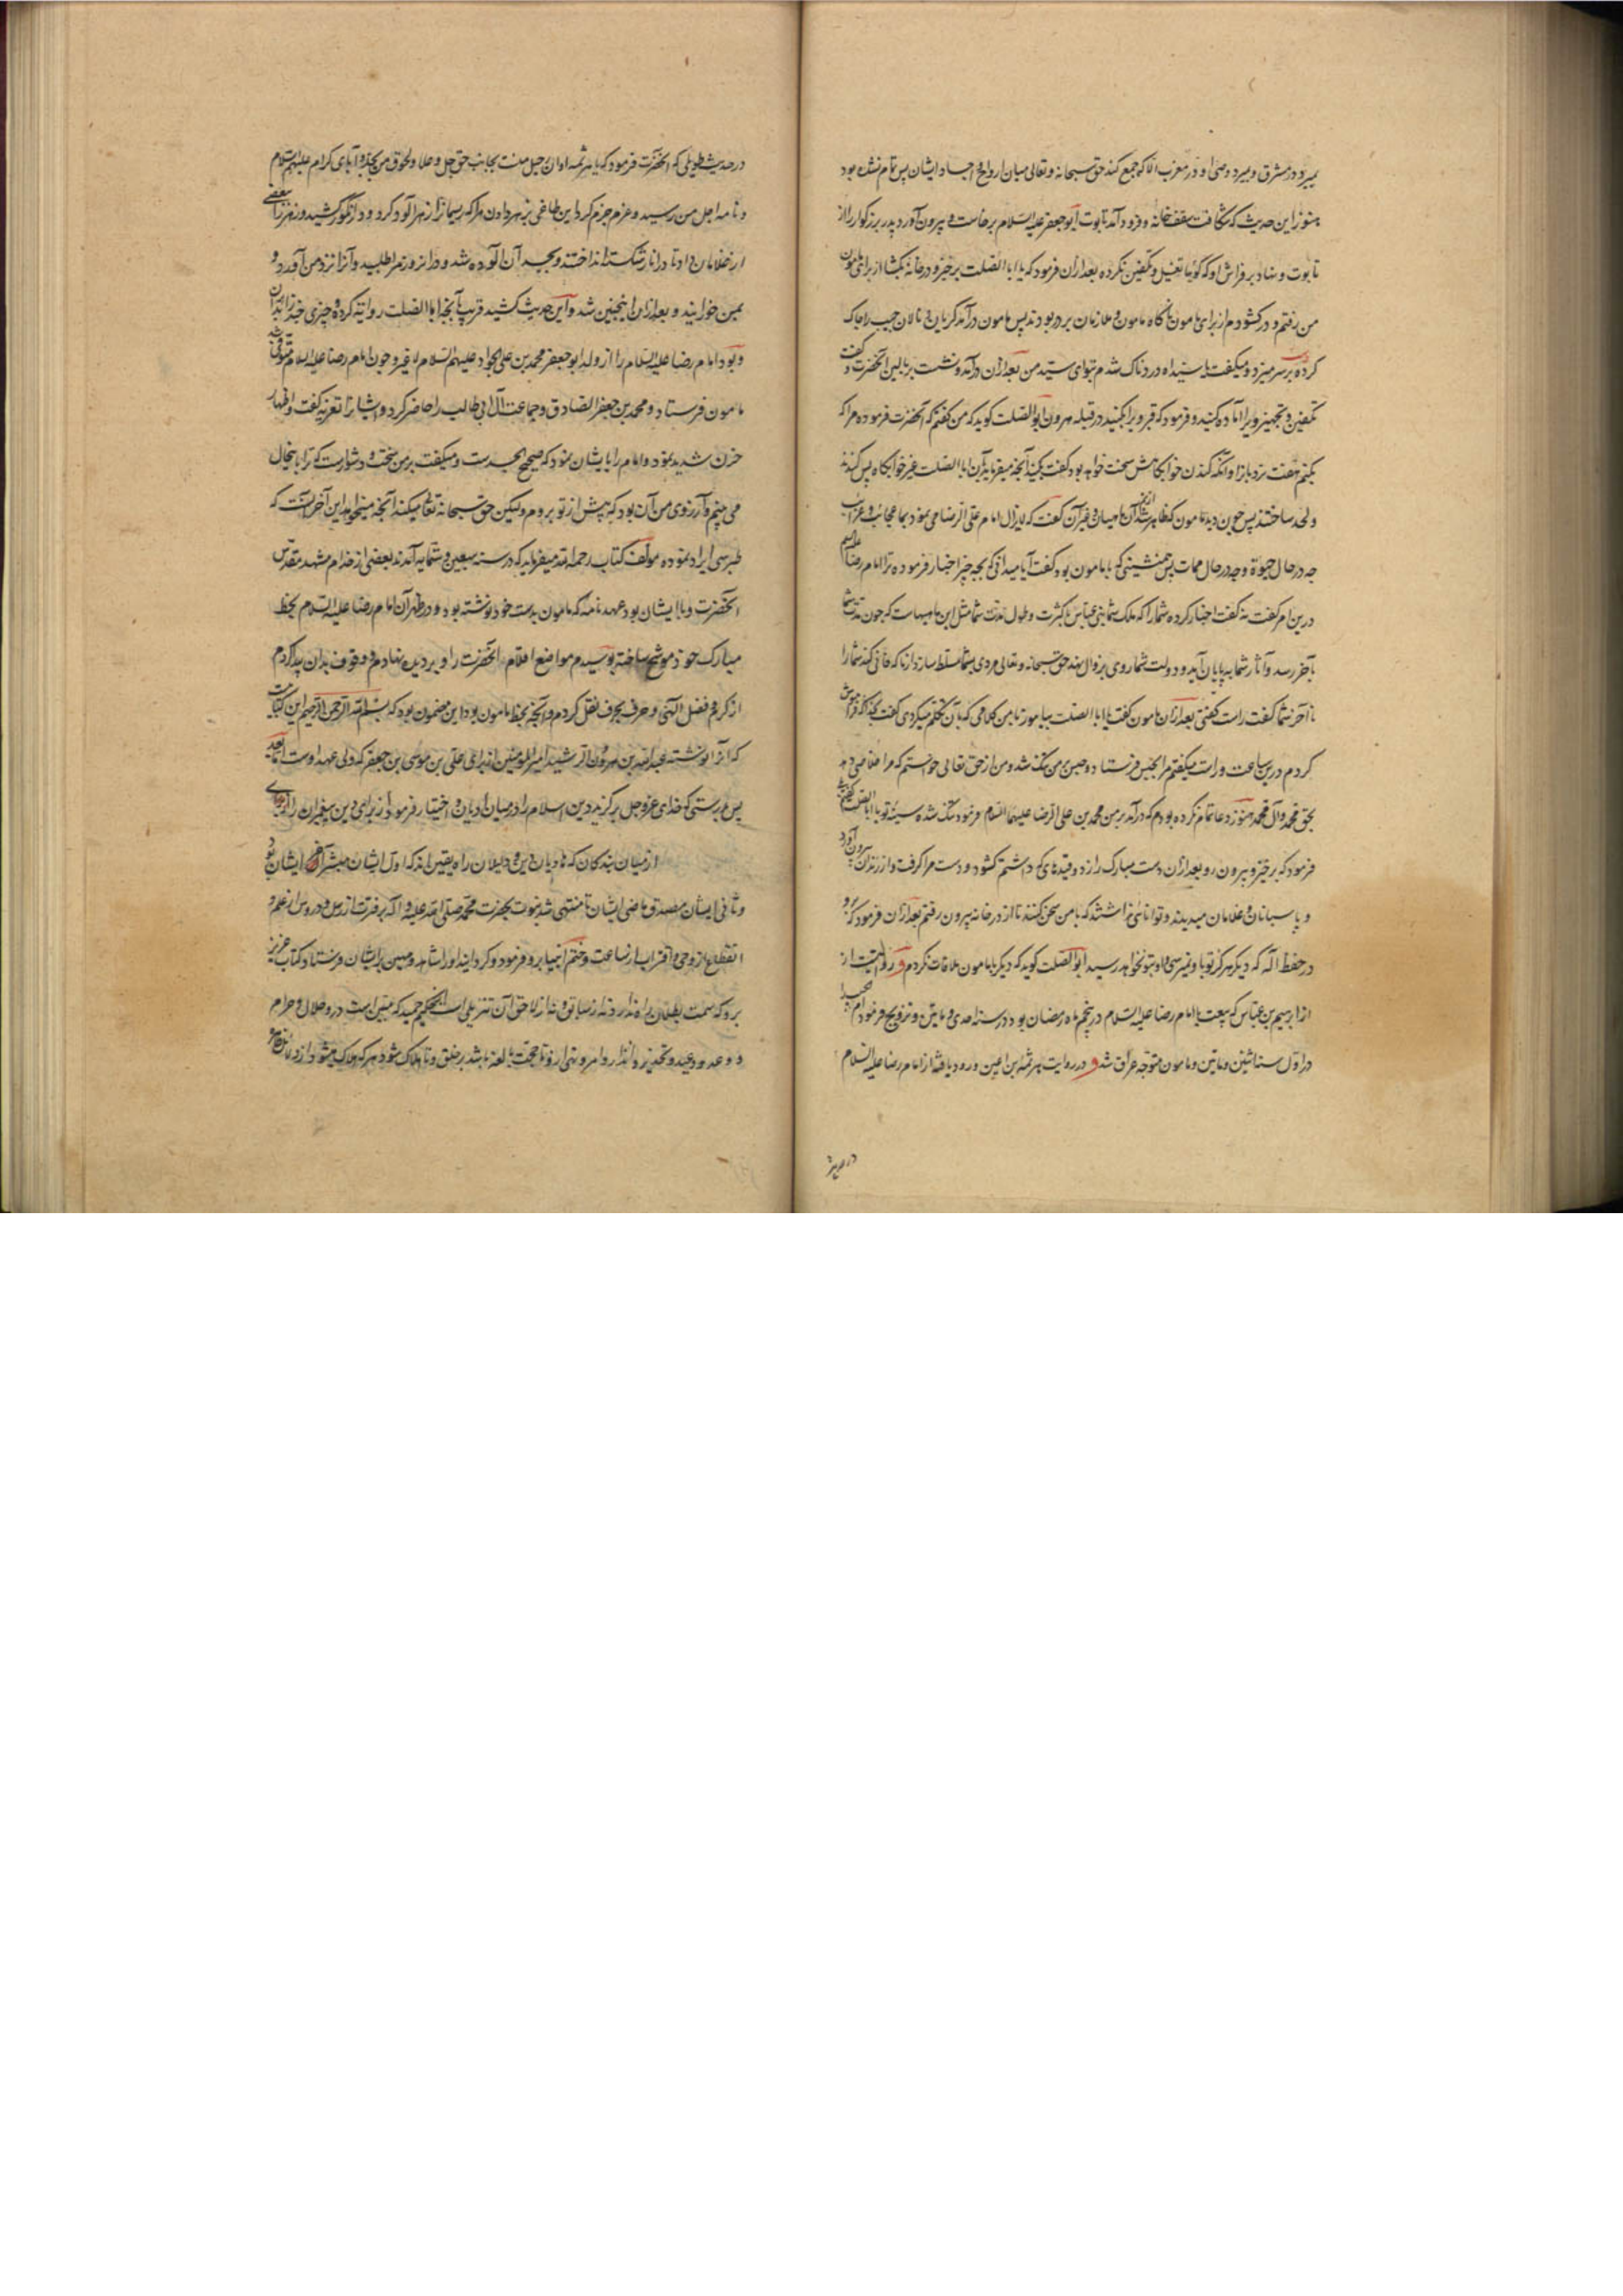 بمیرد در مشرق و بمیرد وصی او در مغرب الا که جمع کند حق سبحانه و تعالی میان ارواح و اجساد ایشان پس تمام نشده بود
هنوز این حدیث که شکافت سقف خانه و فرود آمد تابوت ابو جعفر علیه السلام برخاست و بیرون آورد پدر بزرگوار را از
تابوت و نهاد بر فراش او که گوئیا تغسیل و تکفین نکرده بعد ازان فرمود که یا ابا الصلت برخیز و در خانه بکشا از برای مامون
من رفتم و در کشودم از برای مامون ناگاه مامون و ملازمان بر در بودند پس مامون درآمد گریان و نالان جیب را چاک
کرده بر سر میزد و میگفت یا سیداه دردناک شدم بتو ای سید من بعد ازان درآمد و نشست بر بالین آنحضرت و گفت
تکفین و تجهیز ویرا آماده کنید و فرمود که قبر ویرا بکنید در قبله هرون ابو الصلت کوید که من گفتم که آنحضرت فرموده مرا که
بکنم هفت نردبان و آنکه کندن خوابگاهش سخت خواهد بود گفت بکنید آنچه میفرماید آن ابا الصلت غیر خوابگاه پس کندند
و لحد ساختند پس چون دید مامون که ظاهر شد آن ماهیان و غیر آن گفت که لایزال امام علی الرضا می نمود بما عجائب و غرائب
چه در حال حیوة و چه در حال ممات پس همنشینی که با مامون بود گفت آیا میدانی که بچه چیز اخبار فرموده ترا امام رضا علیه السلام
درین امر گفت نه گفت اخبار کرده شما را که ملک شما بنی عباس با کثرت و طول مدت شما مثل این ماهیهاست که چون مدت شما
بآخر رسد و آثار شما بپایان آید و دولت شما روی بزوال نهد حق سبحانه و تعالی مردی بشما مسلط سازد از ما که فانی کند شما را
تا آخر شما گفت راست گفتی بعد ازان مامون گفت یا ابا الصلت بیاموز تا بمن کلامی که بآن تکلم میکردی گفت بخدا که فراموش
کردم درین ساعت و راست میگفتم مرا بحبس فرستاد و حبس بر من تنگ شد و من از حق تعالی خواستم که مرا خلاصی دهد
بحق محمد و آل محمد هنوز دعا تمام نکرده بودم که درآمد بر من محمد بن علی الرضا علیهما السلام فرمود تنگ شده سینه تو یا ابا الصلت گفتم بلی
فرمود که برخیز و بیرون رو بعد ازان دست مبارک را زد و قیدهای که داشتم کشود و دست مرا گرفت و از زندان بیرون آورد
و پاسبانان و غلامان میدیدند و توانائی نداشتند که با من سخن کنند تا از در خانه بیرون رفتم بعد ازان فرمود که برو
در حفظ اله که دیگر هرگز تو باو نمیرسی و او بتو نخواهد رسید ابو الصلت کوید که دیگر با مامون ملاقات نکردم و روایتست از
از ابرهیم بن عباس که بیعت با امام رضا علیه السلام در پنجم ماه رمضان بود در سنه احدی و مایتین و تزویج فرمود ام حبیبه را
در اول سنه اثنین و مایتین و مامون متوجه عراق شد و در روایت هرثمه بن اعین ورود یافته از امام رضا علیه السلام
در حدیث
در حدیث طویلی که آنحضرت فرمود که یا هرثمه اوان رحیل منست بجانب حق جل و علا و لحوق من بجد و آبای کرام علیهم السلام
و نامه اجل من رسید و عزم جزم کرد این طاغی بزهر دادن مرا که ریسمانرا زهرآلود کرد و در انگور کشید و زهر را بعضی
از غلامان داد تا در انار شکسته انداخته و بجد آن آلوده شد و دران روز مرا طلبید و آنرا نزد من آورد و
بمن خورانید و بعد ازان اینچنین شد و این حدیث کشید قریب بآنچه ابا الصلت روایت کرده و چیزی چند زاید بران
و بود امام رضا علیه السلام را از ولد ابو جعفر محمد بن علی الجواد علیهم السلام لا غیر و چون امام رضا علیه السلام متوفی شد
مامون فرستاد و محمد بن جعفر الصادق و جماعت آل ابی طالب را حاضر کرد و ایشانرا تعزیه گفت و اظهار
حزن شدید نمود و امام را بایشان نمود که صحیح الجسدست و میگفت بر من سخت و دشوارست که ترا باینحال
می بینم و آرزوی من آن بود که پیش از تو بروم ولیکن حق سبحانه تعالی میکند آنچه میخواهد این آخر آنست که
طبرسی ایراد نموده مولف کتاب رحمه الله میفرماید که در سنه سبعین و ستمایه آمدند بعضی از خدام مشهد مقدس
آنحضرت و با ایشان بود عهدنامه که مامون بدست خود نوشته بود و در ظهر آن امام رضا علیه السلام بخط
مبارک خود موشح ساخته بوسیدم مواضع اقلام آنحضرت را و بر دیده نهادم و وقوف بدان پیدا کردم
از کرم و فضل الهی و حرف بحرف نقل کردم و آنچه بخط مامون بود این مضمون بود که بسم الله الرحمن الرحیم این کتابیست
که آنرا نوشته عبد الله بن هرون الرشید امیر المومنین از برای علی بن موسی بن جعفر که ولی عهد اوست اما بعد
پس بدرستی که خدای عز و جل برگزید دین اسلام را در میان ادیان و اختیار فرمود از برای دین پیغمبران را
از میان بندگان که هادیان دین و دلیلان راه یقین اند که اول ایشان مبشر آخر ایشان بود
و ثانی ایشان مصدق ماضی ایشان تا منتهی شد نبوت بحضرت محمد صلی الله علیه و اله بر فترت از رسل و دروس از علم و
انقطاع از وحی و اقتراب از ساعت و ختم انبیا برو فرمود و گردانید او را شاهد و مبین بر ایشان و فرستاد کتاب عزیز
برو که سمت بطلان بدو نه از سابق و نه از لاحق آن تنزیلی است از حکیم حمید که مبین است درو حلال و حرام
و وعد و وعید و تحذیر و انذار و امر و نهی ازو تا حجت بالغه باشد بر خلق و تا هلاک شود هر که هلاک میشود از